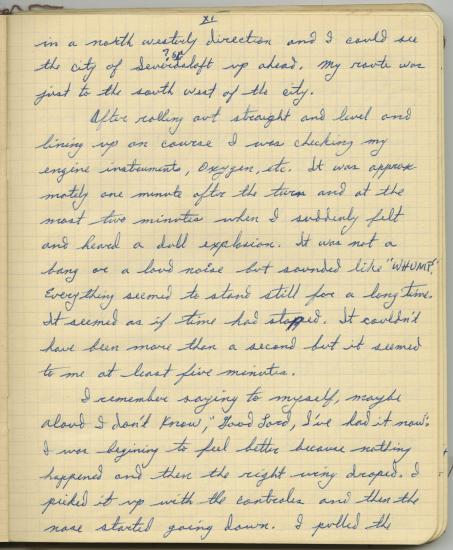 XI
in a north westerly direction and I could see
? sp
the city of Severdsloft up ahead. My route was
just to the south west of the city.
After rolling out straight and level and
lining up on course I was checking my
engine instruments, oxygen, etc. It was approx-
mately one minute after the turn and at the
most two minutes when I suddenly felt
and heard a dull explosion. It was not a
bang or a loud noise but sounded like "WHUMP."
Everything seemed to stand still for a long time.
It seemed as if time had stopped. It couldn't
have been more than a second but it seemed
to me at least five minutes.
I remember saying to myself, maybe
aloud I don't know, "Good Lord, I've had it now".
I was begining to feel better because nothing
happened and then the right wing droped. I
picked it up with the controls and then the
nose started going down. I pulled the